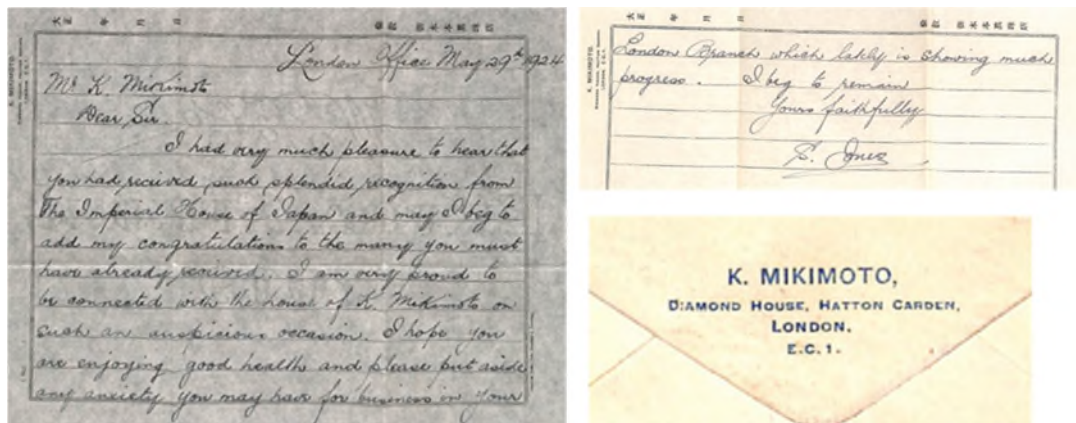 大正 年 月 日
London Office May 29th 1924
Mr K. Mikimoto
Dear Sir.
I had very much pleasure to hear that
you had received such splendid recognition from
The Imperial House of Japan and may I beg to
add my congratulations to the many you must
have already received. I am very proud to
be connected with the house of K. Mikimoto on
such an auspicious occasion. I hope you
are enjoying good health and please put aside
any anxiety you may have for business in your
大正 年 月 日
K. MIKIMOTO.
London Branch which lately is showing much
progress. I beg to remain
Yours faithfully
S. Jones
K. MIKIMOTO,
DIAMOND HOUSE, HATTON GARDEN,
LONDON.
E.C.1.